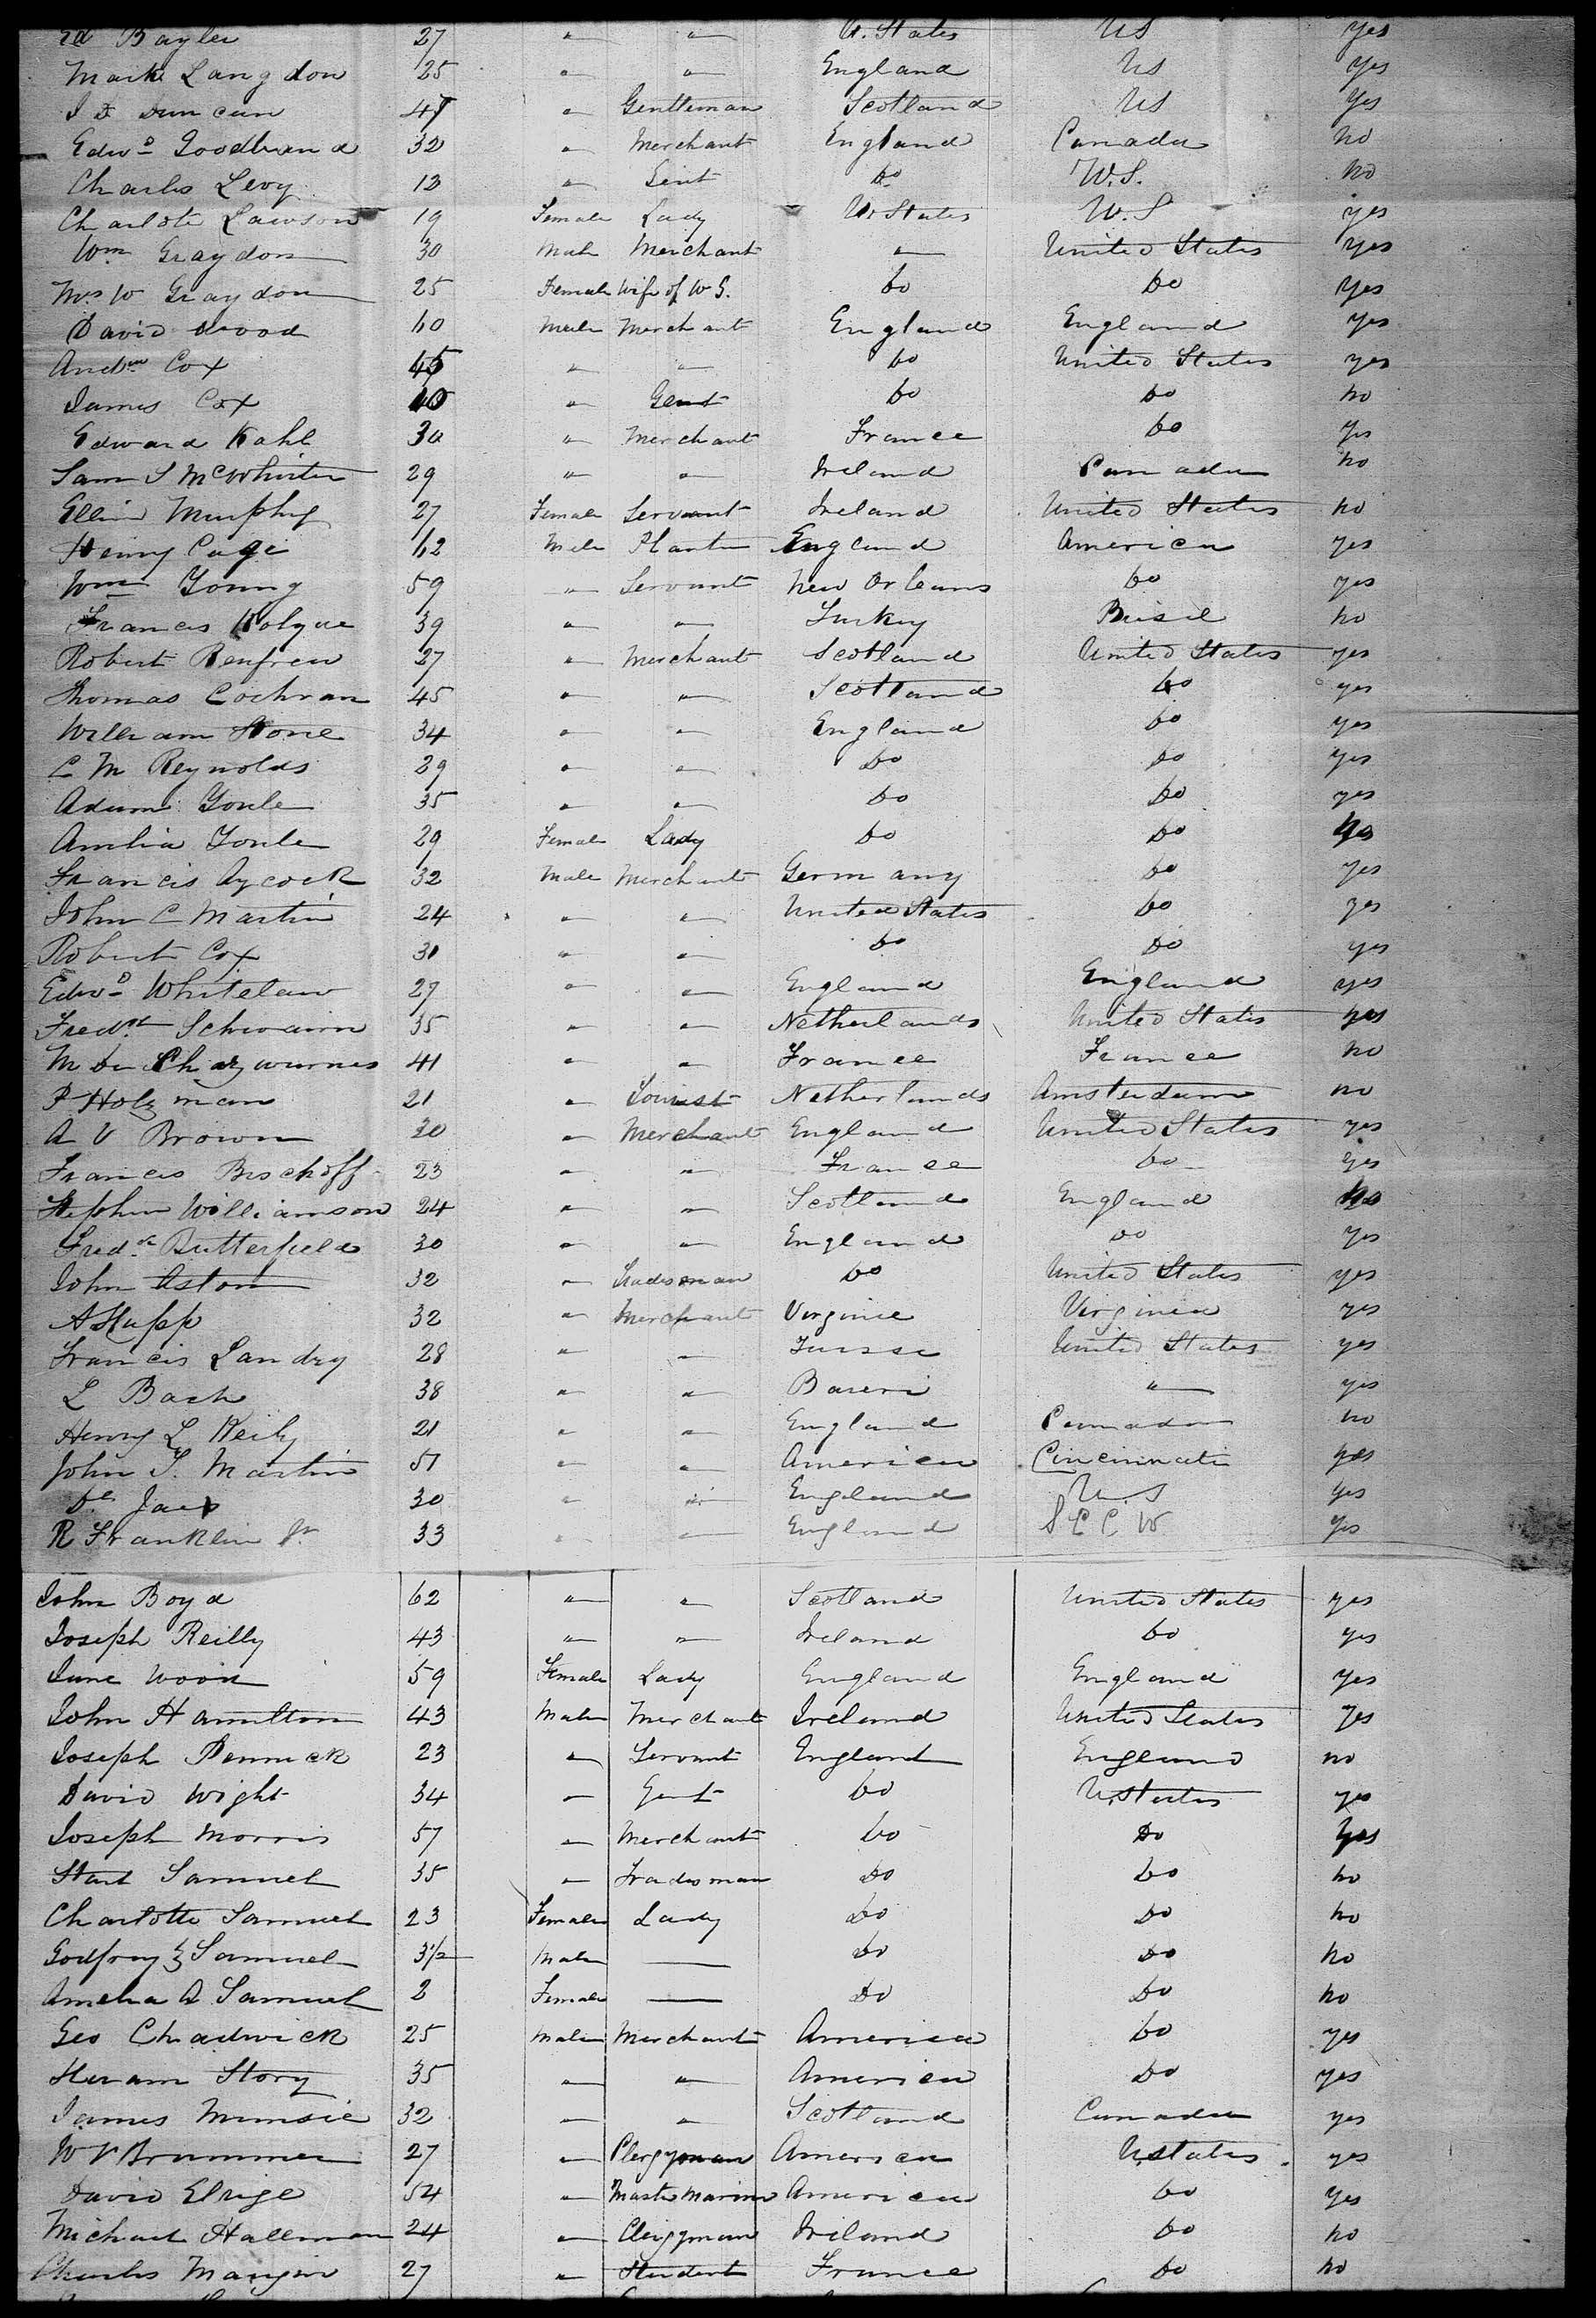 Ed Bayler 27 " " U. States US yes
Mark Langdon 25 " " England US yes
J D Duncan 47 " Gentleman Scotland US Yes
Edwd Goodbrand 32 " Merchant England Canada no
Charles Levy 13 " Gent Do W.S. no
Charlote Lawson 19 Female Lady U States U.S yes
Wm Graydon 30 Male Merchant " United States yes
Mrs W Graydon 25 Female Wife of W G. Do Do yes
David Wood 60 Male Merchant England England yes
Andw Cox 45 " " Do United States yes
James Cox 40 " Gent Do Do no
Edward Kahl 30 " Merchant France Do yes
Sam S McWhirter 29 " " Ireland Canada no
Ellin Murphy 27 Female Servant Ireland United States no
Henry Cage 62 Male Planter England America yes
Wm Young 59 " Servant New Orleans Do yes
Francis 39 " " Turkey no
Robert Renfrew 27 " Merchant Scotland United States yes
Thomas Cochran 45 " " Scotland Do yes
William Stone 34 " " England Do yes
C M Reynolds 29 " " Do Do yes
Adam Youle 35 " " Do Do yes
Amelia Youle 29 Female Lady Do Do yes
Francis Aycock 32 Male Merchant Germany Do yes
John C Martin 24 " " United States Do yes
Robert Cox 31 " " Do Do yes
Edwd Whitelaw 27 " " England England yes
Fredk Schwann 35 " " Netherlands United States yes
M De 41 " " France France no
P Holzman 21 " Tourist Netherlands Amsterdam no
A V Brown 30 " Merchant England United States yes
Francis Bischoff 23 " " France Do yes
Stephen Williamson 24 " " Scotland England no
Fredk Butterfield 30 " " England Do yes
John Aston 32 " Tradesman Do United States yes
A Hupp 32 " Merchant Virginie Virginia yes
Francis Landry 28 " " Suisse United States yes
L Bach 38 " " Baveri " yes
Henry L Reily 21 " " England Canada no
John T. Martin 51 " " America Cincinnati yes
30 " " England U.S yes
R Franklin Jr. 33 " " England yes
John Boyd 62 " " Scotland United States yes
Joseph Reilly 43 " " Ireland Do yes
Jane Wood 59 Female Lady England England yes
John Hamilton 43 Male Merchant Ireland United States yes
Joseph Pennick 23 " Servant England England no
David Wight 34 " Gent Do U States yes
Joseph Morris 57 " Merchant Do Do yes
Start Samuel 35 " Tradesman Do Do no
Charlotte Samuel 23 Female Lady Do Do no
Godfrey Samuel 3½ Male — Do Do no
Amelia A Samuel 2 Female — Do Do no
Geo Chadwick 25 Male Merchant America Do yes
Hiram Story 35 " " America Do yes
James Mimsie 32 " " Scotland Canada yes
W V Brummer 27 " Clergyman America U States yes
David Elrige 54 " Master Marine America Do yes
Michael Halleman 24 " Clergyman Ireland Do no
Charles Mangin 27 " Student France Do no